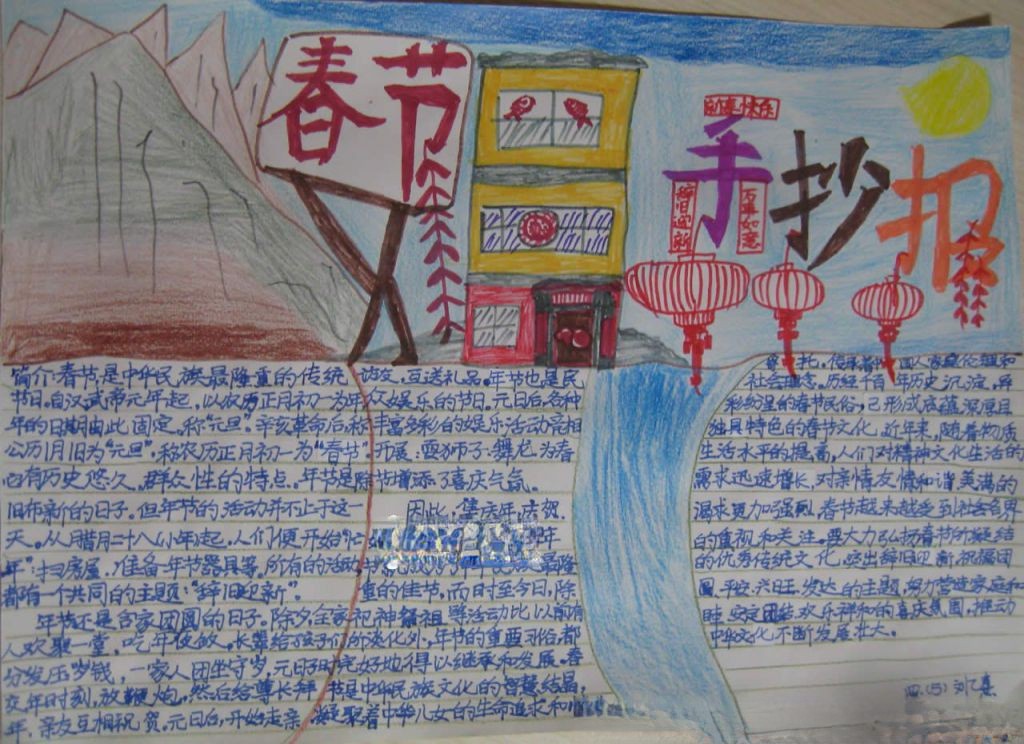 春节
手抄报
新年快乐
辞旧迎新
万事如意
简介:春节,是中华民族最隆重的传统
节日。自汉武帝元年起,以农历正月初一为年
年的日期由此固定。称"元旦"。辛亥革命后称
公历1月1日为"元旦",称农历正月初一为"春节"。
它有历史悠久、群众性的特点。年节是除
旧布新的日子。但年节的活动并不止于这一
天。从腊月二十八小年起,人们便开始"忙
年":扫房屋、准备年节器具等。所有的活动
都有一个共同的主题:"辞旧迎新"。
年节还是合家团圆的日子。除夕全家
人欢聚一堂,吃年夜饭。长辈给孩子们
分发压岁钱,一家人团坐守岁,元日子时
交年时刻,放鞭炮,然后给尊长拜
年,亲友互相祝贺。元日后,开始走亲
访友,互送礼品。年节也是民
众娱乐的节日。元日后,各种
丰富多彩的娱乐活动竞相
开展:耍狮子、舞龙为春
节增添了喜庆气氛。
因此,集庆年、庆贺
重的佳节,而时至今日,除
祀神祭祖等活动比以前有
所淡化外,年节的重要习俗,都
完好地得以继承和发展。春
节是中华民族文化的智慧结晶,
凝聚着中华儿女的生命追求和
寄托,传承着中国人家庭伦理和
社会理念。历经千百年历史沉淀,异
彩纷呈的春节民俗,已形成底蕴深厚且
独具特色的春节文化,近年来,随着物质
生活水平的提高,人们对精神文化生活的
需求迅速增长,对亲情友情和谐美满的
渴求更加强烈,春节越来越受到社会各界
的重视和关注。要大力弘扬春节所凝结
的优秀传统文化,突出辞旧迎新祝福团
圆平安、兴旺发达的主题,努力营造家庭和
睦、安定团结、欢乐祥和的喜庆氛围,推动
中华文化不断发展壮大。
四、(5)